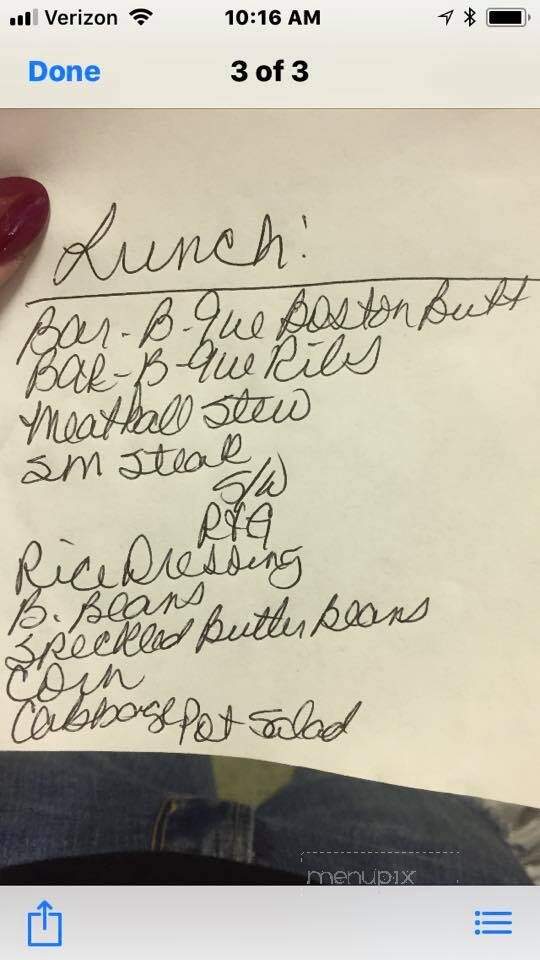 Verizon 10:16 AM
Done 3 of 3
Lunch:
Bar-B-Que Boston Butt
BAR-B-Que Ribs
Meatball Stew
SM Steak
S/W
R&G
Rice Dressing
B. Beans
Speckled Butter Beans
Corn
Cabbage Pot Salad
menupix